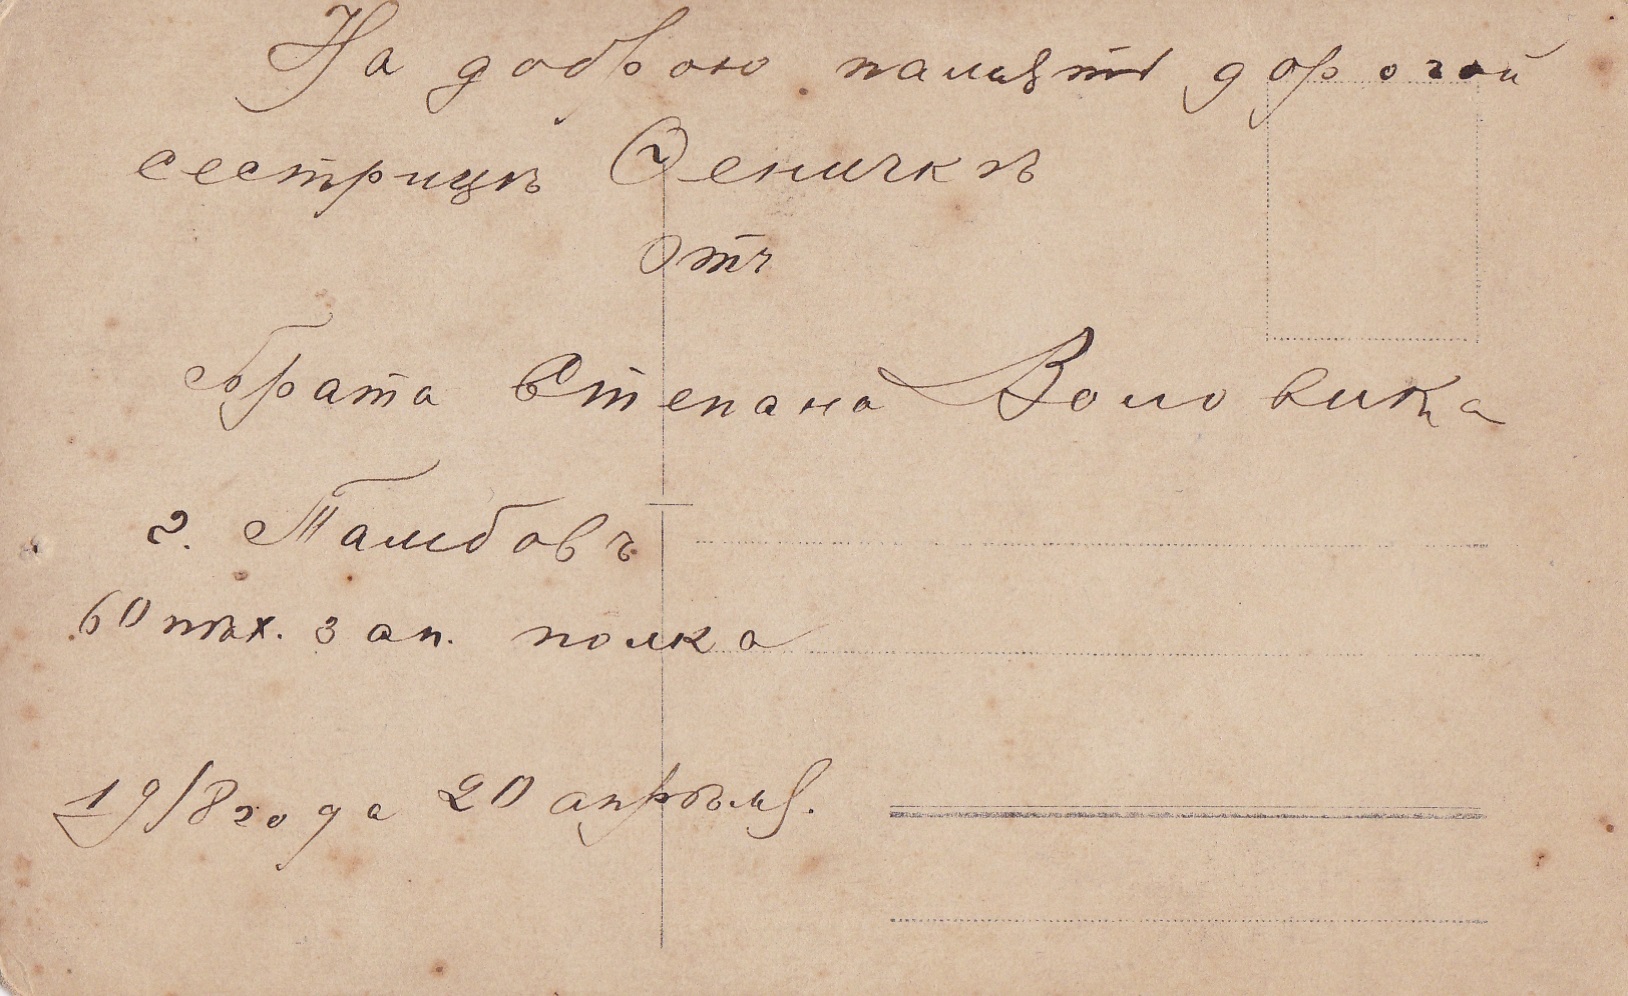 На доброю память дорогой
сестрицѣ Ѳеничкѣ
Отъ
Брата Степана
г. Тамбовъ
60 пѣх. зап. полка
1918 года 20 апрѣля.